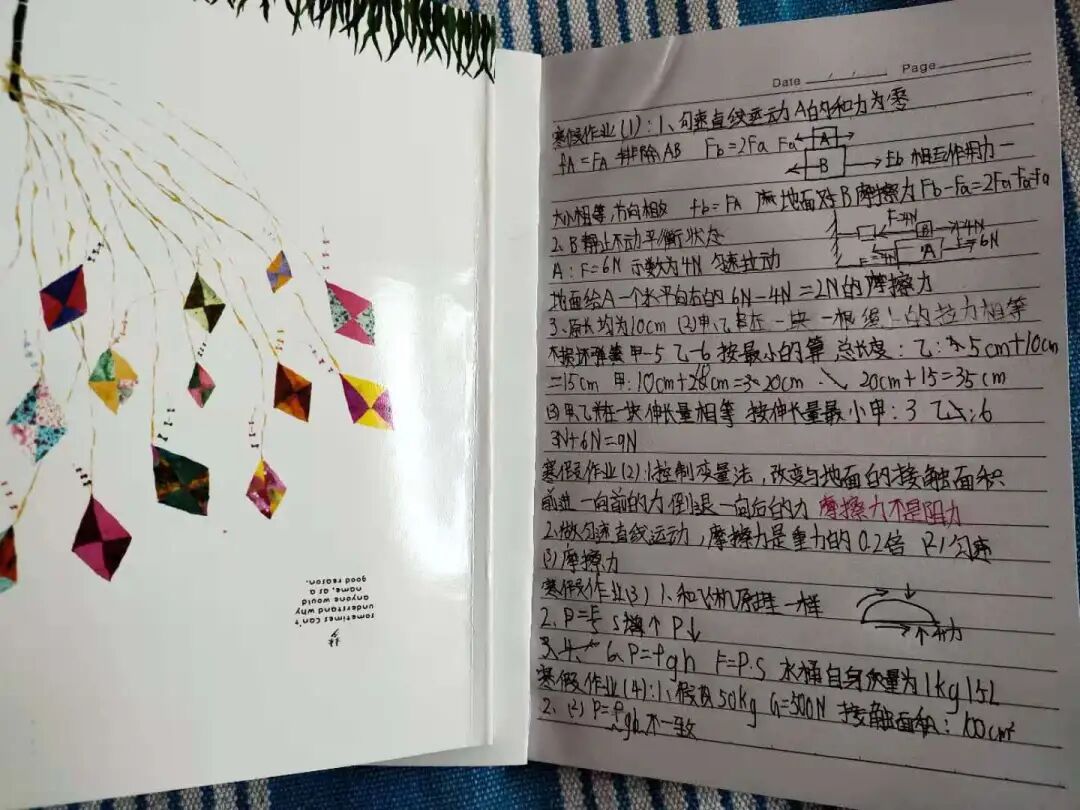 Date / / Page
寒假作业(1):1、匀速直线运动A的合力为零
fA=FA 排除AB Fb=2Fa Fa A
B Fb 相互作用力一
大小相等,方向相反 fb=FA 地面对B摩擦力Fb-Fa=2Fa-Fa=Fa
2、B静止不动平衡状态 F=4N B 4N
A:F=6N 示数为4N 匀速拉动 F=4N A F=6N
地面给A一个水平向右的6N-4N=2N的摩擦力
3、原长均为10cm (2)甲、乙串在一块一根绳上的拉力相等
不损坏弹簧 甲-5 乙-6 按最小的算 总长度:乙:5cm+10cm
=15cm 甲:10cm+cm=20cm 20cm+15=35cm
(3)甲、乙并在一块伸长量相等 按伸长量最小甲:3 乙:6
3N+6N=9N
寒假作业(2)1、控制变量法,改变与地面的接触面积
前进一向前的力 倒退一向后的力 摩擦力不是阻力
2、做匀速直线运动,摩擦力是重力的0.2倍 匀速
(3)摩擦力
寒假作业(3)1、和飞机原理一样
升力
2、P= S增个 P↓
3、 6、P=ρgh F=P·S 水桶自身质量为1kg 15L
寒假作业(4):1、假设50kg G=500N 接触面积:100cm²
2、(2)P=ρgh不一致
sometimes can't
understand why
anyone would
name, as a
good reason.